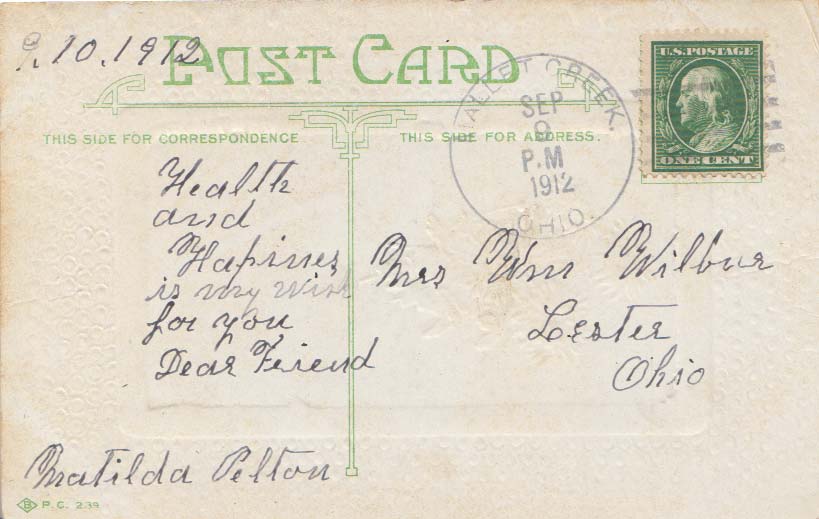 9. 10. 1912
POST CARD
THIS SIDE FOR CORRESPONDENCE
THIS SIDE FOR ADDRESS.
MALLET CREEK.
SEP
9
P.M
1912
OHIO.
U.S. POSTAGE
ONE CENT
Health
and
Hapines
is my wish
for you
Dear Friend
Mrs Wm Wilbur
Lester
Ohio
Matilda Pelton
B P.C. 239